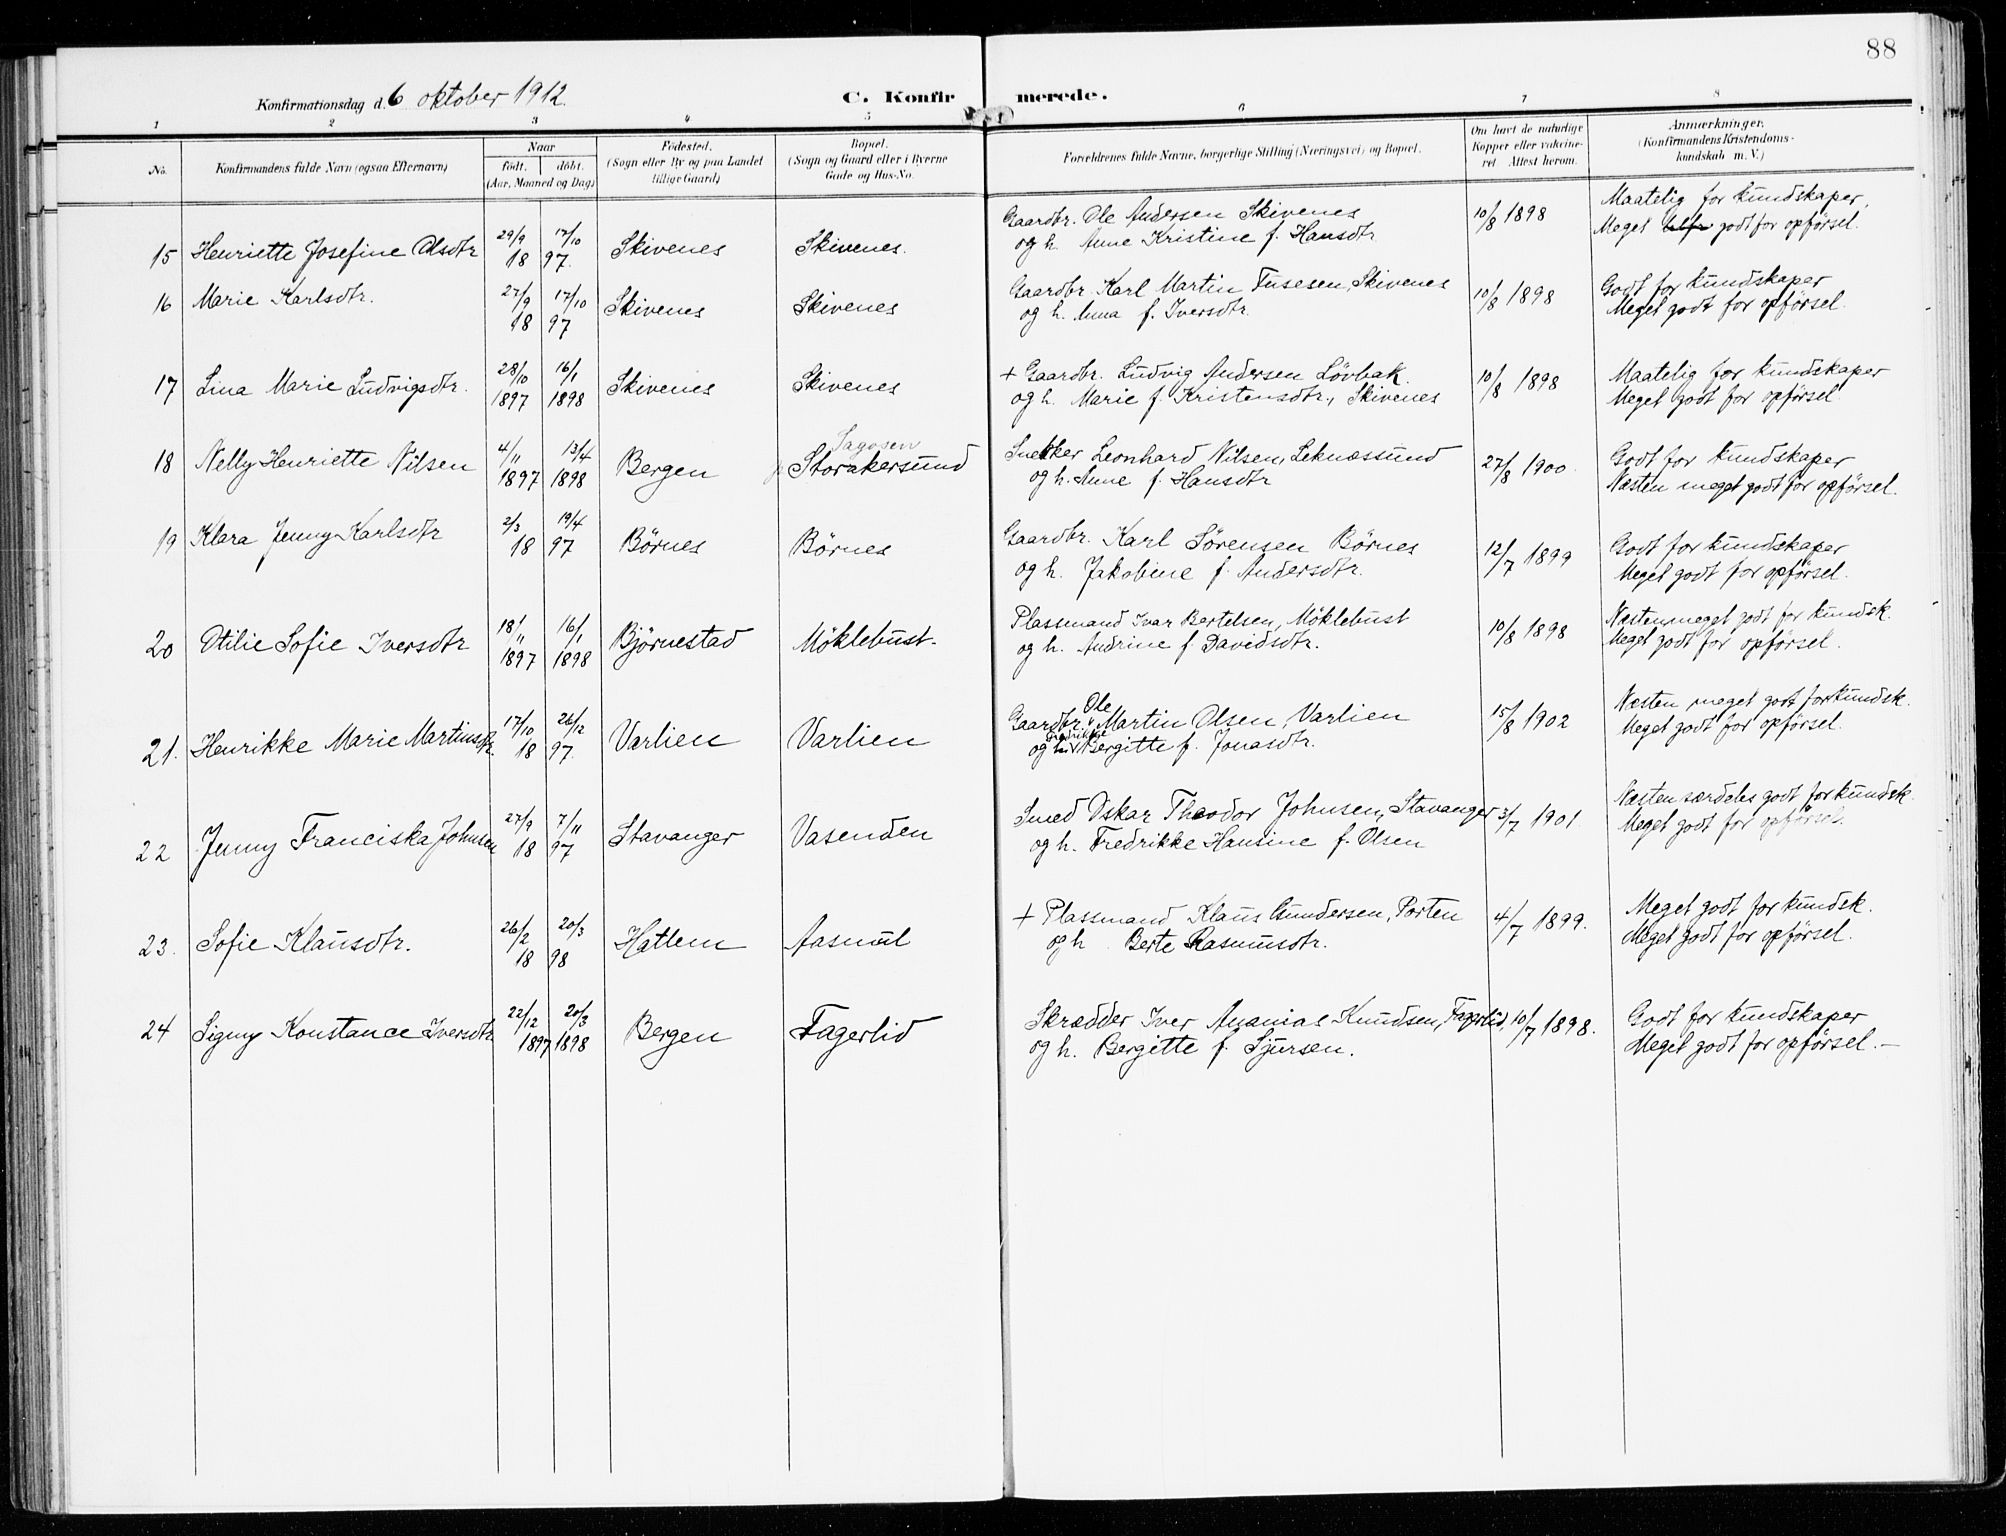 88
Konfirmationsdag d. 6 oktober 1912.
C. Konfirmerede.
1 2 3 4 5 6 7 8
No. Konfirmandens fulde Navn (ogsaa Efternavn) Naar födt. döbt. (Aar, Maaned og Dag) Födested. (Sogn eller By og paa Landet tillige Gaard) Bopæl. (Sogn og Gaard eller i Byerne Gade og Hus-No. Forældrenes fulde Navne, borgerlige Stilling (Næringsvei) og Bopæl. Om havt de naturlige Kopper eller vaccineret Attest herom. Anmærkninger. (Konfirmandens Kristendomskundskab m. V.)
15 Henriette Josefine Olsdtr 29/9 17/10 1897. Skivenes Skivenes. Gaardbr. Ole Andersen Skivenes 10/8 1898 Maatelig for kundskaper,
og h. Anne Kristine f. Hansdtr Meget godt for opførsel.
16 Marie Karlsdtr. 27/9 17/10 1897 Skivenes Skivenes Gaardbr. Karl Martin Fusesen, Skivenes 10/8 1898 Godt for kundskaper
og h. Anna f. Iversdtr. Meget godt for opførsel.
17 Lina Marie Ludvigsdtr. 28/10 1897 16/1 1898 Skivenes Skivenes + Gaardbr. Ludvig Andersen Lövbak. 10/8 1898 Maatelig for kundskaper
og h. Marie f. Kristensdtr., Skivenes Meget godt for opførsel
18 Nelly Henriette Nilsen 4/11 1897 13/4 1898 Bergen Storakersund Snekker Leonhard Nilsen, Leknæssund 27/8 1900. Godt for kundskaper
og h. Anne f. Hansdtr Næsten meget godt for opførsel.
19 Klara Jenny Karlsdtr 2/3 19/4 1897 Börnes Börnes Gaardbr. Karl Sörensen Börnes 12/7 1899 Godt for kundskaper
og h. Jakobine f. Andersdtr. Meget godt for opførsel.
20 Otilie Sofie Iversdtr 18/11 1897 16/1 1898 Björnestad Möklebust. Plassmand Ivar Bertelsen, Möklebust 10/8 1898 Næsten meget godt for kundsk.
og h. Andrine f. Davidsdtr. Meget godt for opførsel.
21. Henrikke Marie Martinsdtr. 17/10 26/12 1897. Varlien Varlien Gaardbr. Ole Martin Olsen, Varlien 15/8 1902 Næsten meget godt for kundsk.
og h. Fredrikke Bergitte f. Jonasdtr. Meget godt for opførsel.
22 Jenny Franciska Johnsen 27/9 7/11 1897 Stavanger Vasenden Smed Oskar Theodor Johnsen, Stavanger 3/7 1901 Næsten særdeles godt for kundsk.
og h. Fredrikke Hansine f. Olsen Meget godt for opførsel.
23. Sofie Klausdtr. 26/2 20/3 1898 Hatlem Aasmul + Plassmand Klaus Gundersen, Porten 4/7 1899. Meget godt for kundsk.
og h. Berte Rasmusdtr. Meget godt for opførsel.
24 Signy Konstance Iversdtr 22/12 1897 20/3 1898 Bergen Fagerlid Skrædder Iver Ananias Knudsen, Fagerlid, 10/7 1898. Godt for kundskaper
og h. Bergitte f. Sjursen. Meget godt for opførsel. —